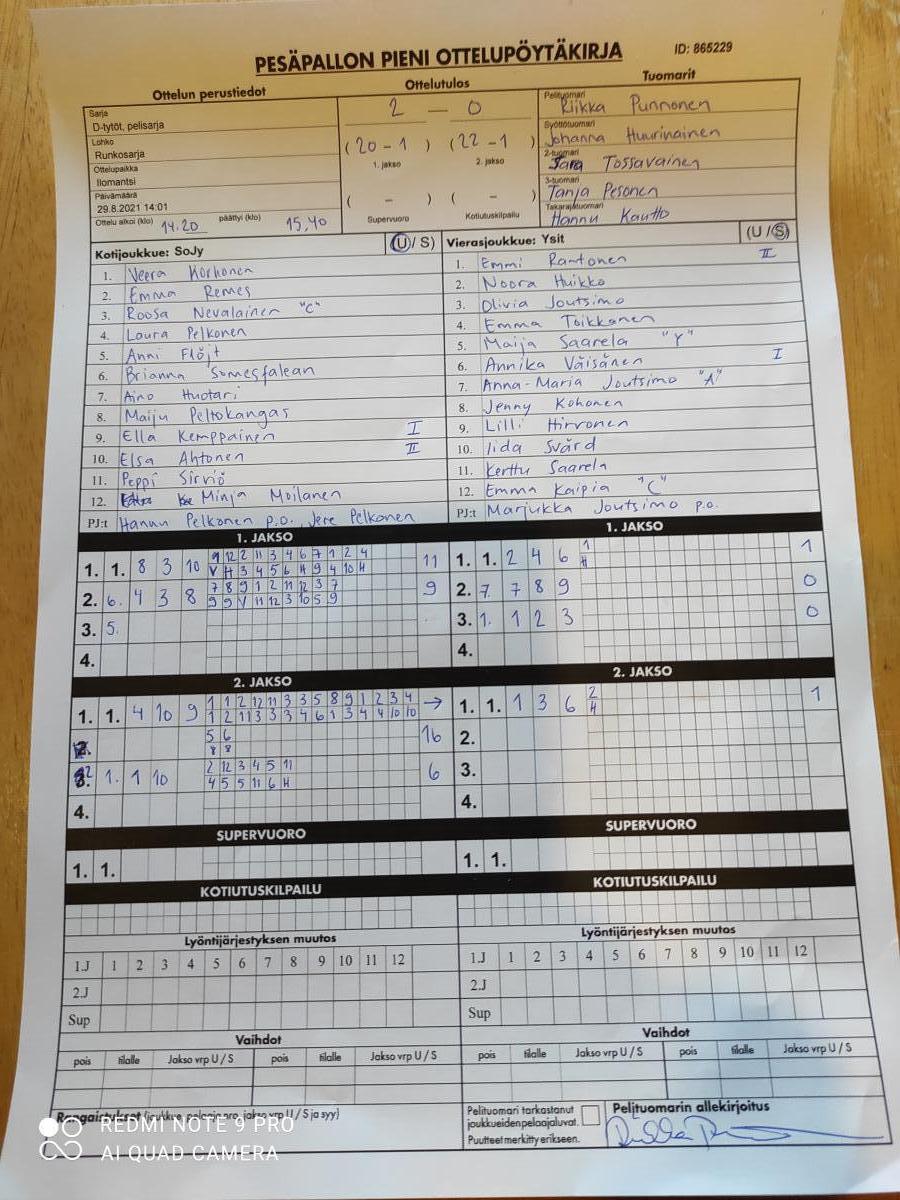 PESÄPALLON PIENI OTTELUPÖYTÄKIRJA
ID: 865229
Ottelun perustiedot
Sarja
D-tytöt, pelisarja
Lohko
Runkosarja
Ottelupaikka
Ilomantsi
Päivämäärä
29.8.2021 14:01
Ottelu alkoi (klo) 14.20 päättyi (klo) 15.40
Ottelutulos
2 — 0
(20 - 1) (22 - 1)
1. jakso 2. jakso
( - ) ( - )
Supervuoro Kotiutuskilpailu
Tuomarit
Pelituomari
Riikka Punnonen
Syöttötuomari
Johanna Huurinainen
2-tuomari
Sara Tossavainen
3-tuomari
Tanja Pesonen
Takarajatuomari
Hannu Kautto
Kotijoukkue: SoJy (U / S)
1. Veera Korhonen
2. Emma Remes
3. Roosa Nevalainen "C"
4. Laura Pelkonen
5. Anni Flöjt
6. Brianna Somesfalean
7. Aino Huotari
8. Maiju Peltokangas
9. Ella Kemppainen I
10. Elsa Ahtonen II
11. Peppi Sirviö
12. Minja Moilanen
PJ:t Hannu Pelkonen p.o. Jere Pelkonen
Vierasjoukkue: Ysit (U / S)
1. Emmi Rantonen II
2. Noora Huikko
3. Olivia Joutsimo
4. Emma Toikkanen
5. Maija Saarela "Y"
6. Annika Väisänen I
7. Anna-Maria Joutsimo "A"
8. Jenny Kohonen
9. Lilli Hirvonen
10. Iida Svärd
11. Kerttu Saarela
12. Emma Kaipia "C"
PJ:t Marjukka Joutsimo p.o.
1. JAKSO
1. 1. 8 3 10 9 12 2 11 3 4 6 7 1 2 4 11
V H 3 4 5 6 H 9 4 10 H
2. 6. 4 3 8 7 8 9 1 2 11 12 3 7 9
9 9 V 11 12 3 10 5 9
3. 5.
4.
1. JAKSO
1. 1. 2 4 6 1 1
H
2. 7. 7 8 9 0
3. 1. 1 2 3 0
4.
2. JAKSO
1. 1. 4 10 9 1 1 2 12 11 3 3 5 8 9 1 2 3 4 →
1 2 11 3 3 3 4 6 1 3 4 4 10 10
5 6 16
8 8
2. 1. 1 10 2 12 3 4 5 11 6
4 5 5 11 6 H
4.
2. JAKSO
1. 1. 1 3 6 2 1
H
2.
3.
4.
SUPERVUORO
1. 1.
SUPERVUORO
1. 1.
KOTIUTUSKILPAILU
KOTIUTUSKILPAILU
Lyöntijärjestyksen muutos
1.J 1 2 3 4 5 6 7 8 9 10 11 12
2.J
Sup
Lyöntijärjestyksen muutos
1.J 1 2 3 4 5 6 7 8 9 10 11 12
2.J
Sup
Vaihdot
pois tilalle Jakso vrp U / S pois tilalle Jakso vrp U / S
Vaihdot
pois tilalle Jakso vrp U / S pois tilalle Jakso vrp U / S
Rangaistukset (joukkue, pelaaja nro, jakso vrp U / S ja syy)
Pelituomari tarkastanut
joukkueiden pelaajaluvat.
Puutteet merkitty erikseen.
Pelituomarin allekirjoitus
REDMI NOTE 9 PRO
AI QUAD CAMERA